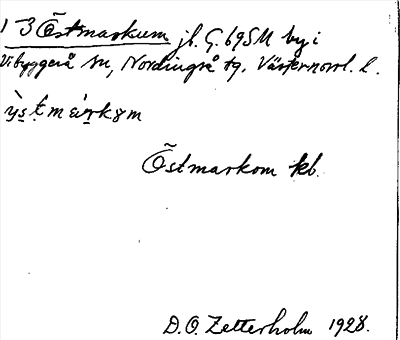 1 3 Östmarkum jb. G. 695M by i
Vibyggerå sn, Nordingrå tg. Västernorrl. l.
Östmarkom kb.
D.O. Zetterholm 1928.